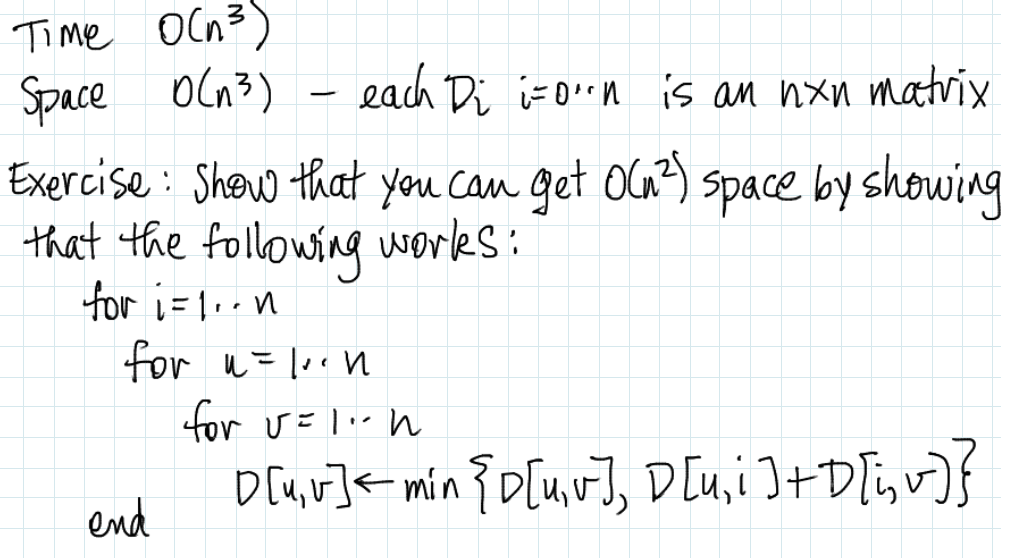 Time O(n³)
Space O(n³) - each Di i=0..n is an n×n matrix
Exercise: Show that you can get O(n²) space by showing
that the following works:
for i=1..n
for u=1..n
for v=1..n
D[u,v]←min{D[u,v], D[u,i]+D[i,v]}
end